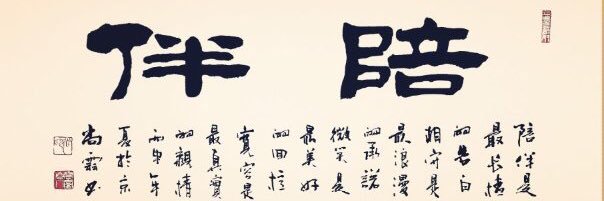 陪伴
陪伴是
最长情
的告白
相守是
最浪漫
的承諾
微笑是
最美好
的回忆
寬容是
最真實
的親情
丙申年
夏於京
尚
书